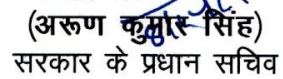 (अरूण कुमार सिंह)
सरकार के प्रधान सचिव